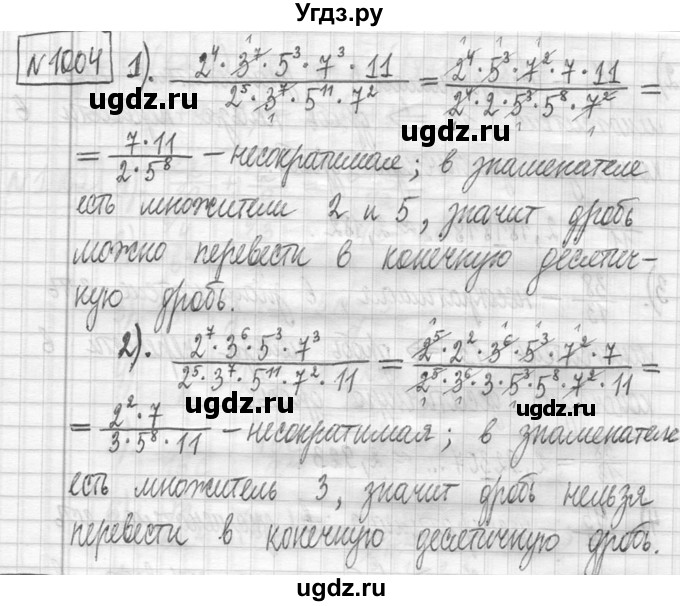 Угдз.ру
№1004 1). (2⁴·3⁷·5³·7³·11)/(2⁵·3⁷·5¹¹·7²) = (2⁴·5³·7²·7·11)/(2⁴·2·5³·5⁸·7²) =
ugdz.ru ugdz.ru
= (7·11)/(2·5⁸) – несократимая; в знаменателе
есть множители 2 и 5, значит дробь
можно перевести в конечную десятич-
ную дробь.
ugdz.ru ugdz.ru
2). (2⁷·3⁶·5³·7³)/(2⁵·3⁷·5¹¹·7²·11) = (2⁵·2²·3⁶·5³·7²·7)/(2⁵·3⁶·3·5³·5⁸·7²·11) =
ugdz.ru ugdz.ru
= (2²·7)/(3·5⁸·11) – несократимая; в знаменателе
есть множитель 3, значит дробь нельзя
перевести в конечную десятичную дробь.
ugdz.ru ugdz.ru